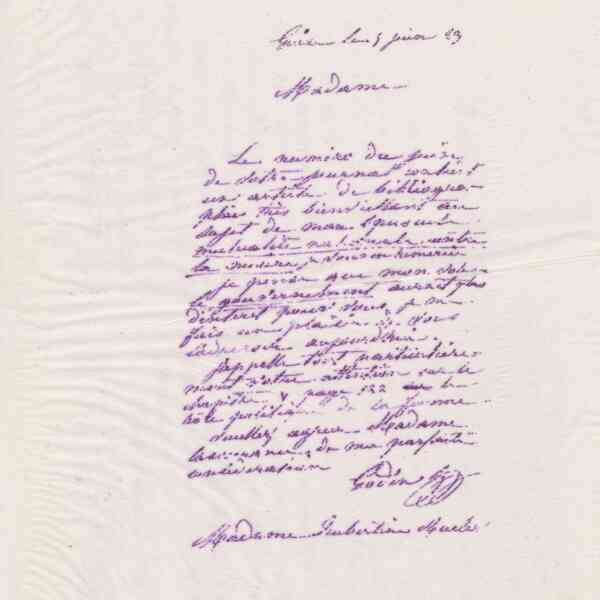 Guise le 5 juin 83
Madame
Le numéro de juin
de votre journal contient
un article de bibliogra-
phie très bienveillant au
sujet de mon opuscule
mutualité nationale contre
la misère, je vous en remercie
je pense que mon volume
le gouvernement aurait plus
d'intérêt pour vous, je me
fais un plaisir de vous
l'adresser aujourd'hui.
J'appelle tout particulière-
ment votre attention sur le
chapitre V page 122 le
rôle politique de la femme
Veuillez agréer Madame
l'assurance de ma parfaite
considération
Godin
Madame Hubertine Auclert